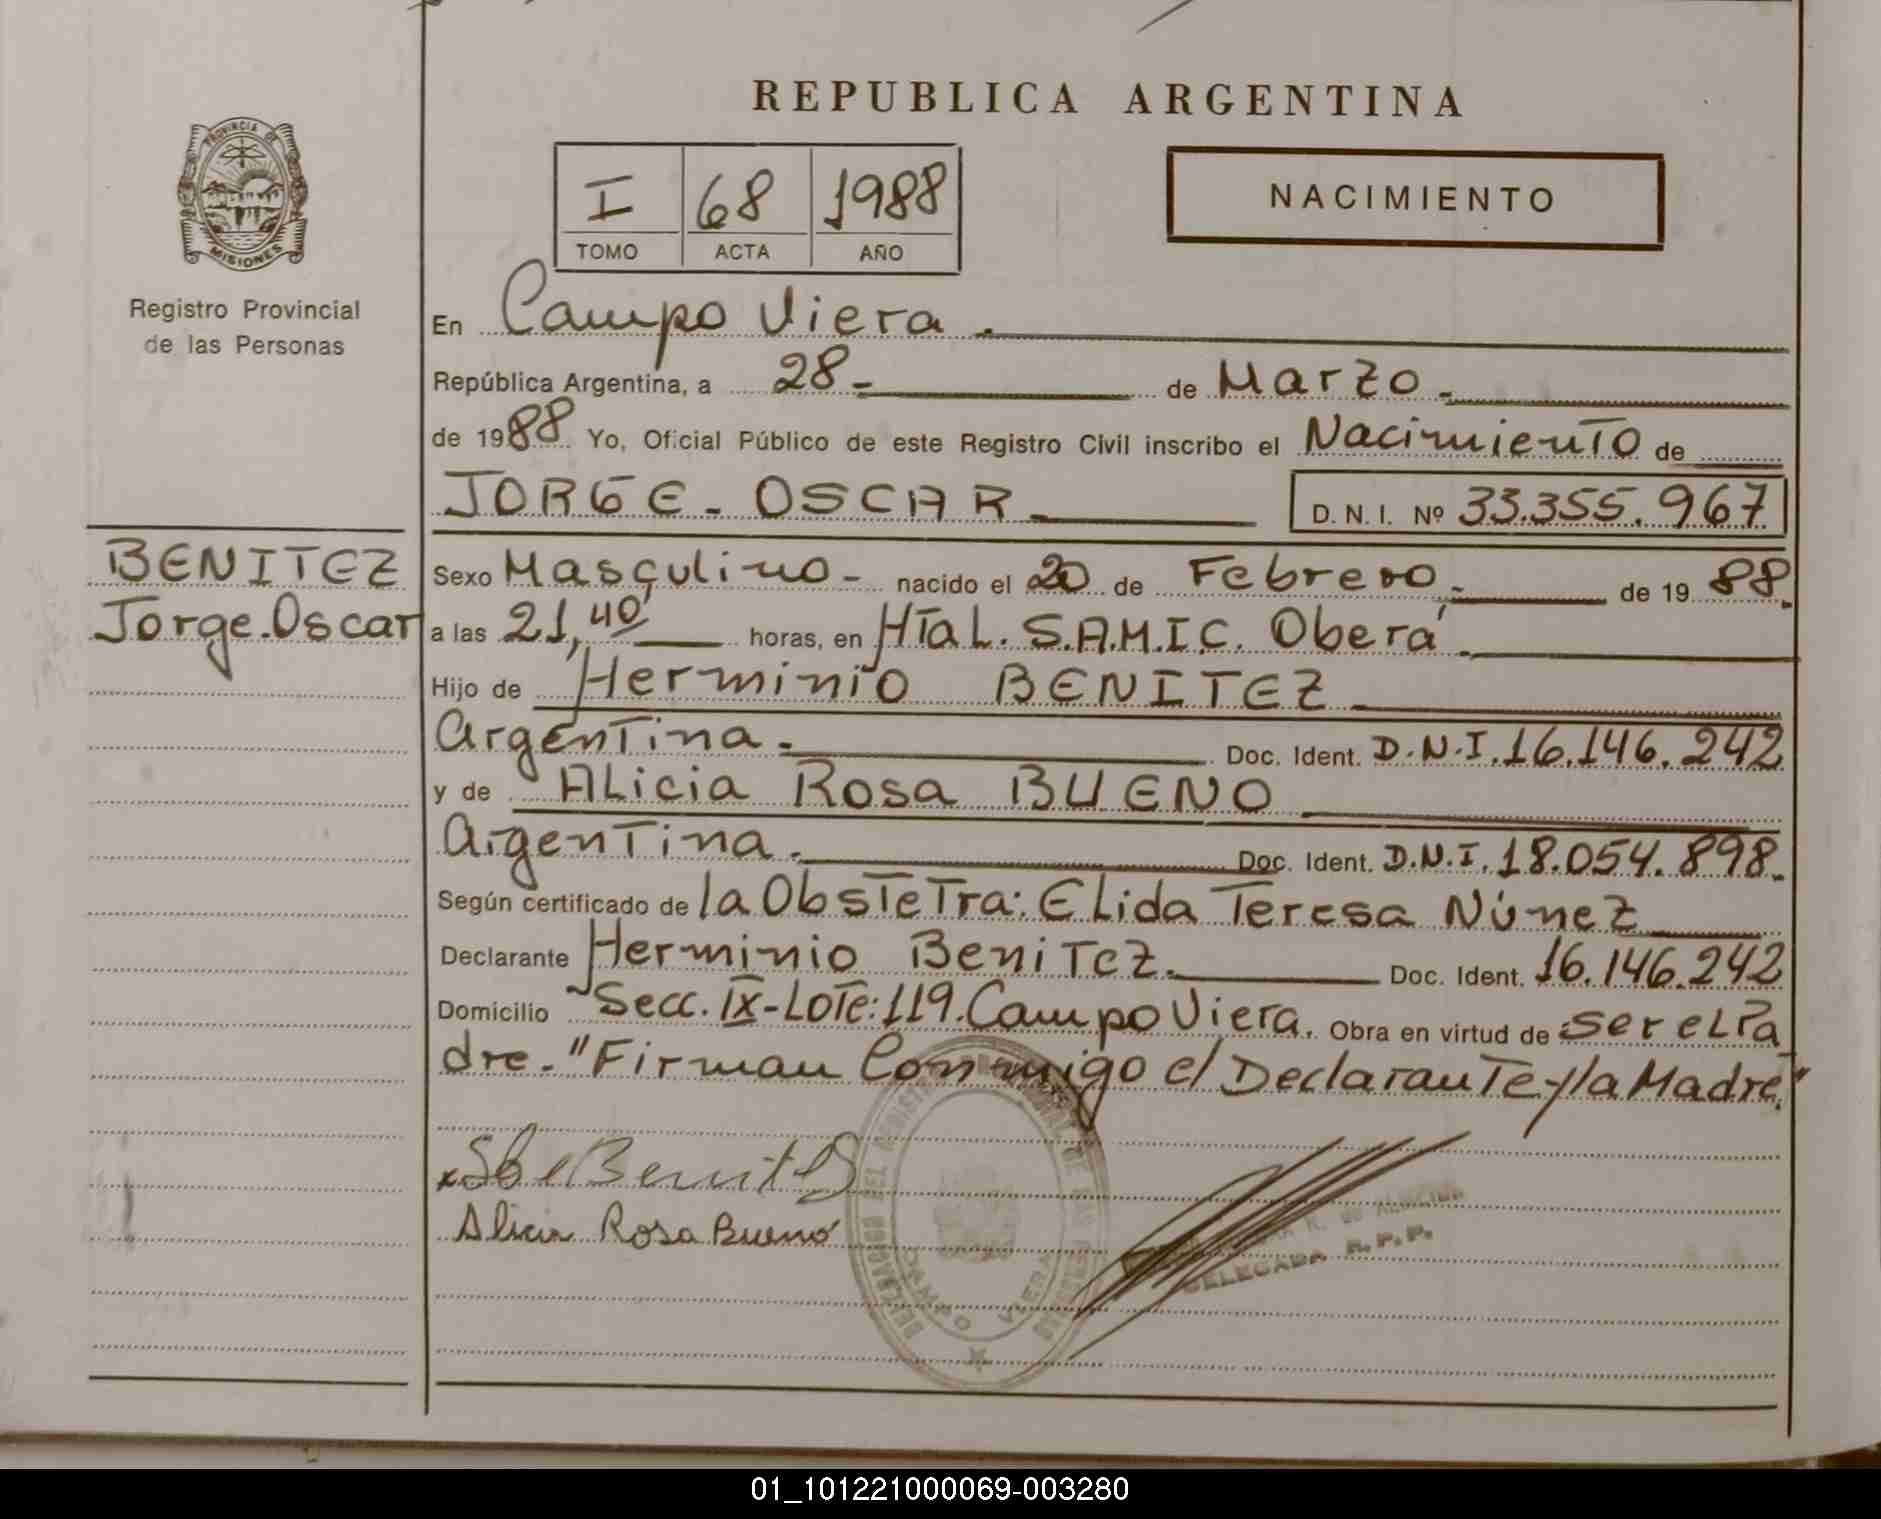 REPUBLICA ARGENTINA
PROVINCIA DE
MISIONES
Registro Provincial
de las Personas
I 68 1988
TOMO ACTA AÑO
NACIMIENTO
En Campo Viera.
República Argentina, a 28- de Marzo.
de 1988 Yo, Oficial Público de este Registro Civil inscribo el Nacimiento de
JORGE- OSCAR. D. N. I. Nº 33.355.967
BENITEZ
Jorge.Oscar
Sexo Masculino- nacido el 20 de Febrero. de 19 88.
a las 21,40 horas, en HTaL. S.A.M.I.C. Oberá.
Hijo de Herminio BENITEZ
Argentina. Doc. Ident. D.N.I.16.146.242
y de ALicia Rosa BUENO
Argentina. Doc. Ident. D.N.I.18.054.898.
Según certificado de la ObsTeTra: ELida Teresa Núnez
Declarante Herminio BeniTez. Doc. Ident. 16.146.242
Domicilio Secc. IX-LOTe:119.Campo Viera. Obra en virtud de ser eL Pa
dre.- "Firman Conmigo el DeclaranTe y la Madre."
Benitez
Alicia Rosa Bueno
DELEGACION DEL REGISTRO PROVINCIAL DE LAS PERSONAS
CAMPO VIERA
R. de ALMEIDA
DELEGADA R.P.P.
01_101221000069-003280